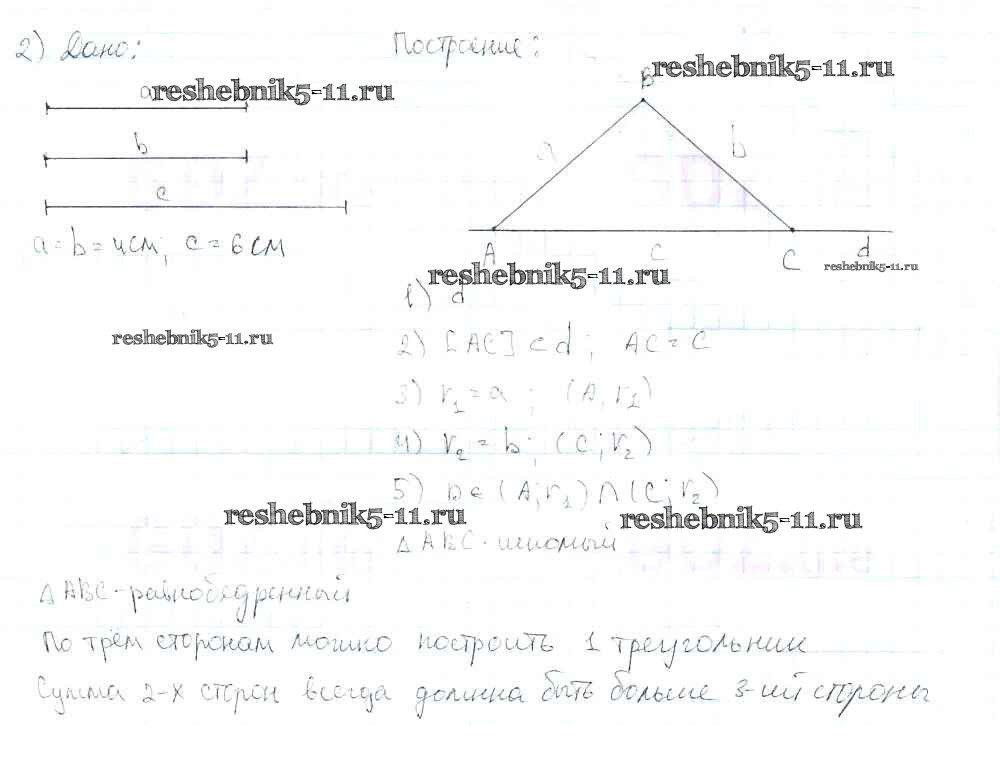 2) Дано:
Построение:
a reshebnik5-11.ru
b
c
a = b = 4 см; c = 6 см
B reshebnik5-11.ru
a b
A c C d
reshebnik5-11.ru
reshebnik5-11.ru
reshebnik5-11.ru
1) d
2) [AC] ⊂ d; AC = c
3) r₁ = a; (A, r₁)
4) r₂ = b; (C; r₂)
5) B ∈ (A; r₁) ∩ (C; r₂)
reshebnik5-11.ru
reshebnik5-11.ru
△ ABC - искомый
△ ABC - равнобедренный
По трём сторонам можно построить 1 треугольник
Сумма 2-х сторон всегда должна быть больше 3-ий стороны